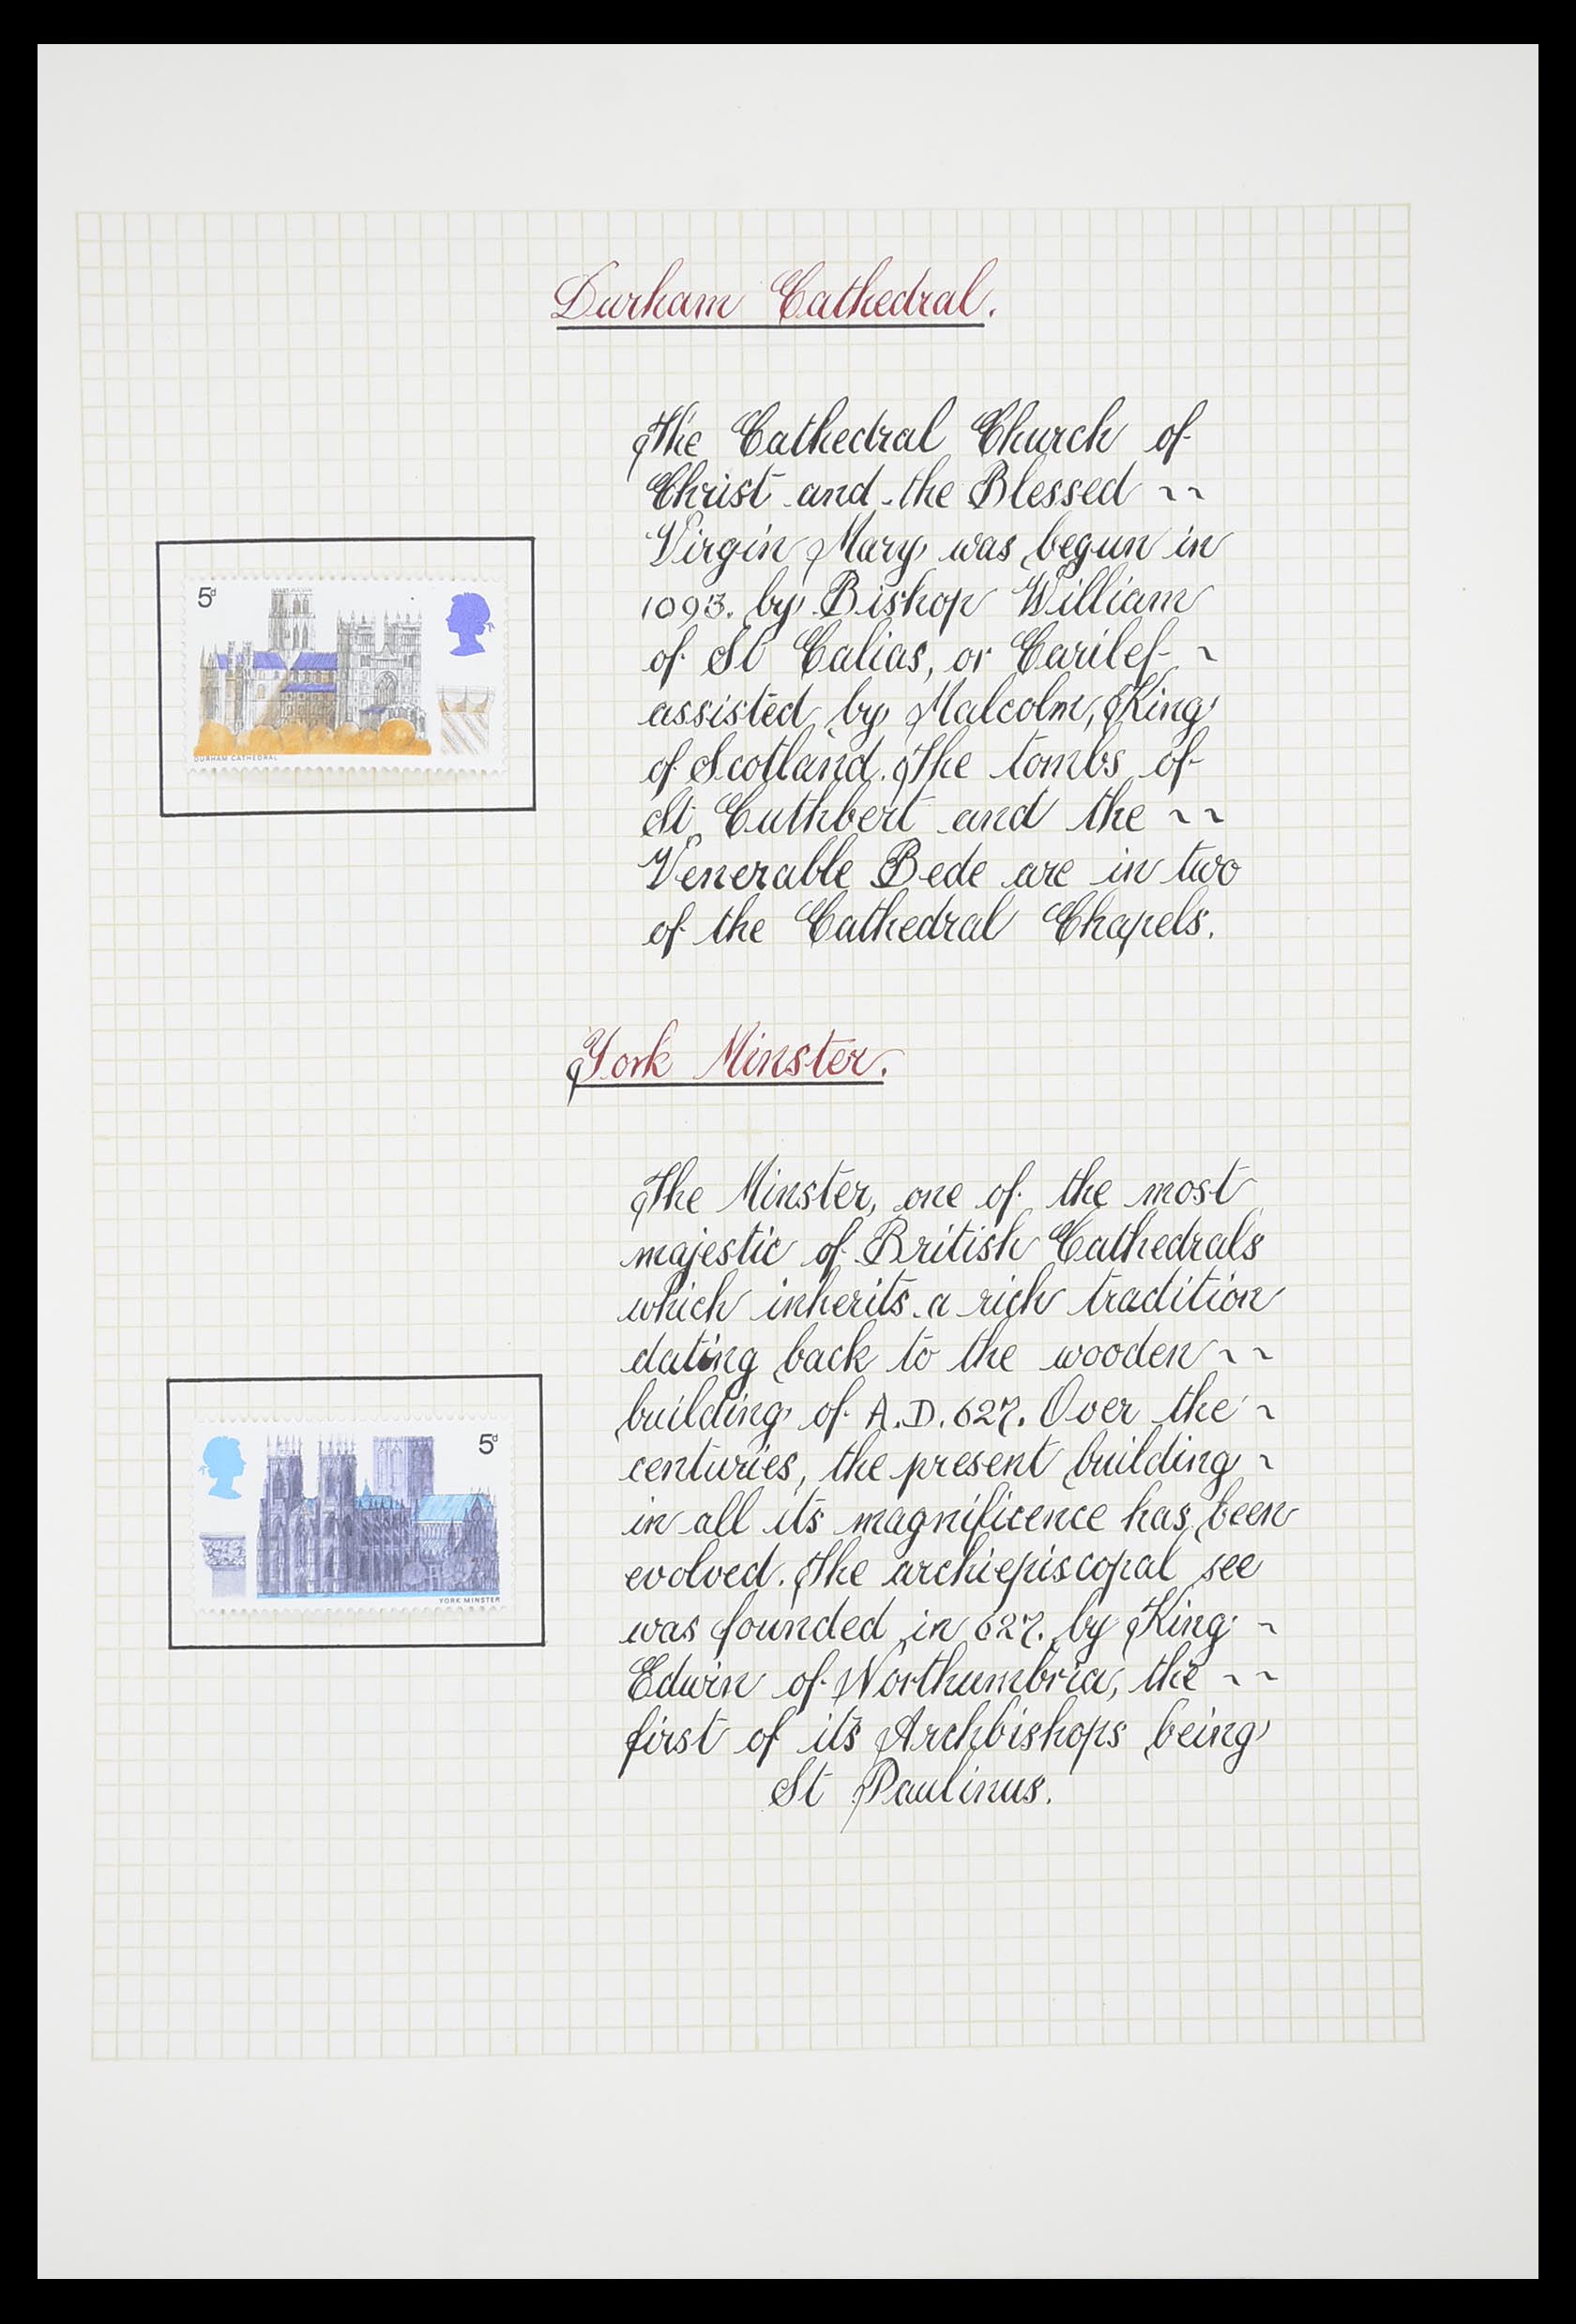 Durham Cathedral.
The Cathedral Church of
Christ and the Blessed ~~
Virgin Mary was begun in
1093. by Bishop William
of St Calias, or Carilef ~
assisted by Malcolm, King
of Scotland. The tombs of
St Cuthbert and the ~~
Venerable Bede are in two
of the Cathedral Chapels.
5d
DURHAM CATHEDRAL
York Minster.
The Minster, one of the most
majestic of British Cathedrals
which inherits a rich tradition
dating back to the wooden ~~
building of A.D. 627. Over the ~
centuries, the present building ~
in all its magnificence has been
evolved. The archiepiscopal see
was founded in 627. by King ~
Edwin of Northumbria, the ~~
first of its Archbishops being
St Paulinus.
5d
YORK MINSTER